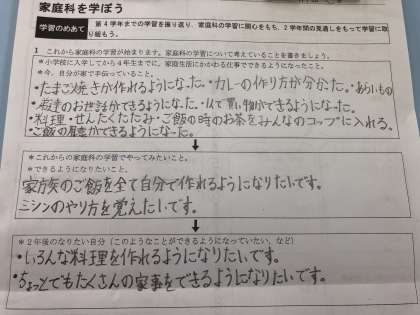 家庭科を学ぼう
学習のめあて
第4学年までの学習を振り返り、家庭科の学習に関心をもち、2学年間の見通しをもって学習に取り組もう。
1 これから家庭科の学習が始まります。家庭科の学習について考えていることを書きましょう。
*小学校に入学してから4年生までに、家庭生活にかかわる仕事でできるようになったこと。
*今、自分が家で手伝っていること。
・たまご焼きが作れるようになった。・カレーの作り方が分かった。・あらいもの
・のお世話ができるようになった。・1人で買い物ができるようになった。
・料理・せんたくたたみ・ご飯の時のお茶をみんなのコップに入れる。
・ご飯の用意ができるようになった。
*これからの家庭科の学習でやってみたいこと。
*できるようになりたいこと。
家族のご飯を全て自分で作れるようになりたいです。
ミシンのやり方を覚えたいです。
*2年後のなりたい自分（このようなことができるようになっていたい、など）
・いろんな料理を作れるようになりたいです。
・ちょっとでもたくさんの家事をできるようになりたいです。